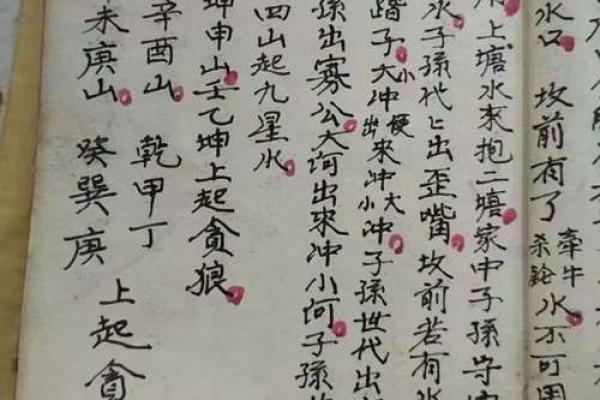 水口。坎前有了牽牛殺鈴水不可用
用上塘水來抱二塘家中子孫守
水。子孫代代出歪嘴。坎前若有水
踏子。大小冲出便來冲大小冲。子孫世代出
孫出寡公。大河出來冲小河。子孫
四山起九星水。
坤申山。壬乙坤上起貪狼。
辛酉山。乾甲丁
未庚山。癸巽庚上起貪